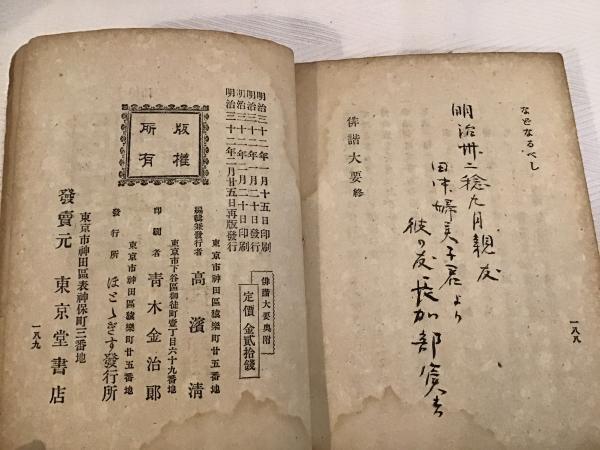 なとなるべし
俳諧大要終
明治卅二稔九月親友
より
彼の友
一八八
明治三十二年一月十五日印刷
明治三十二年一月二十日發行
明治三十二年二月二十日印刷
明治三十二年二月廿五日再版發行
俳諧大要奥附
定價 金貳拾錢
版權所有
東京市神田區猿樂町廿五番地
編輯兼發行者 高濱清
東京市下谷區御徒町壹丁目六十九番地
印刷者 青木金治郎
東京市神田區猿樂町廿五番地
發行所 ほとゝぎす發行所
東京市神田區表神保町三番地
發賣元 東京堂書店
一八九